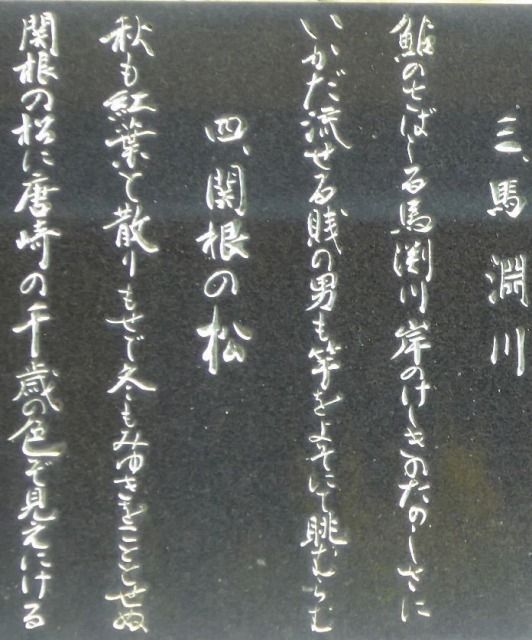 三、馬淵川
鮎のさばしる馬渕川岸のけしきのたのしさに
いかだ流せる賤の男も竿をよそにて眺むらむ
四、関根の松
秋も紅葉と散りもせで冬もみゆきをことゝせぬ
関根の松に唐崎の千歳の色ぞ見えにける